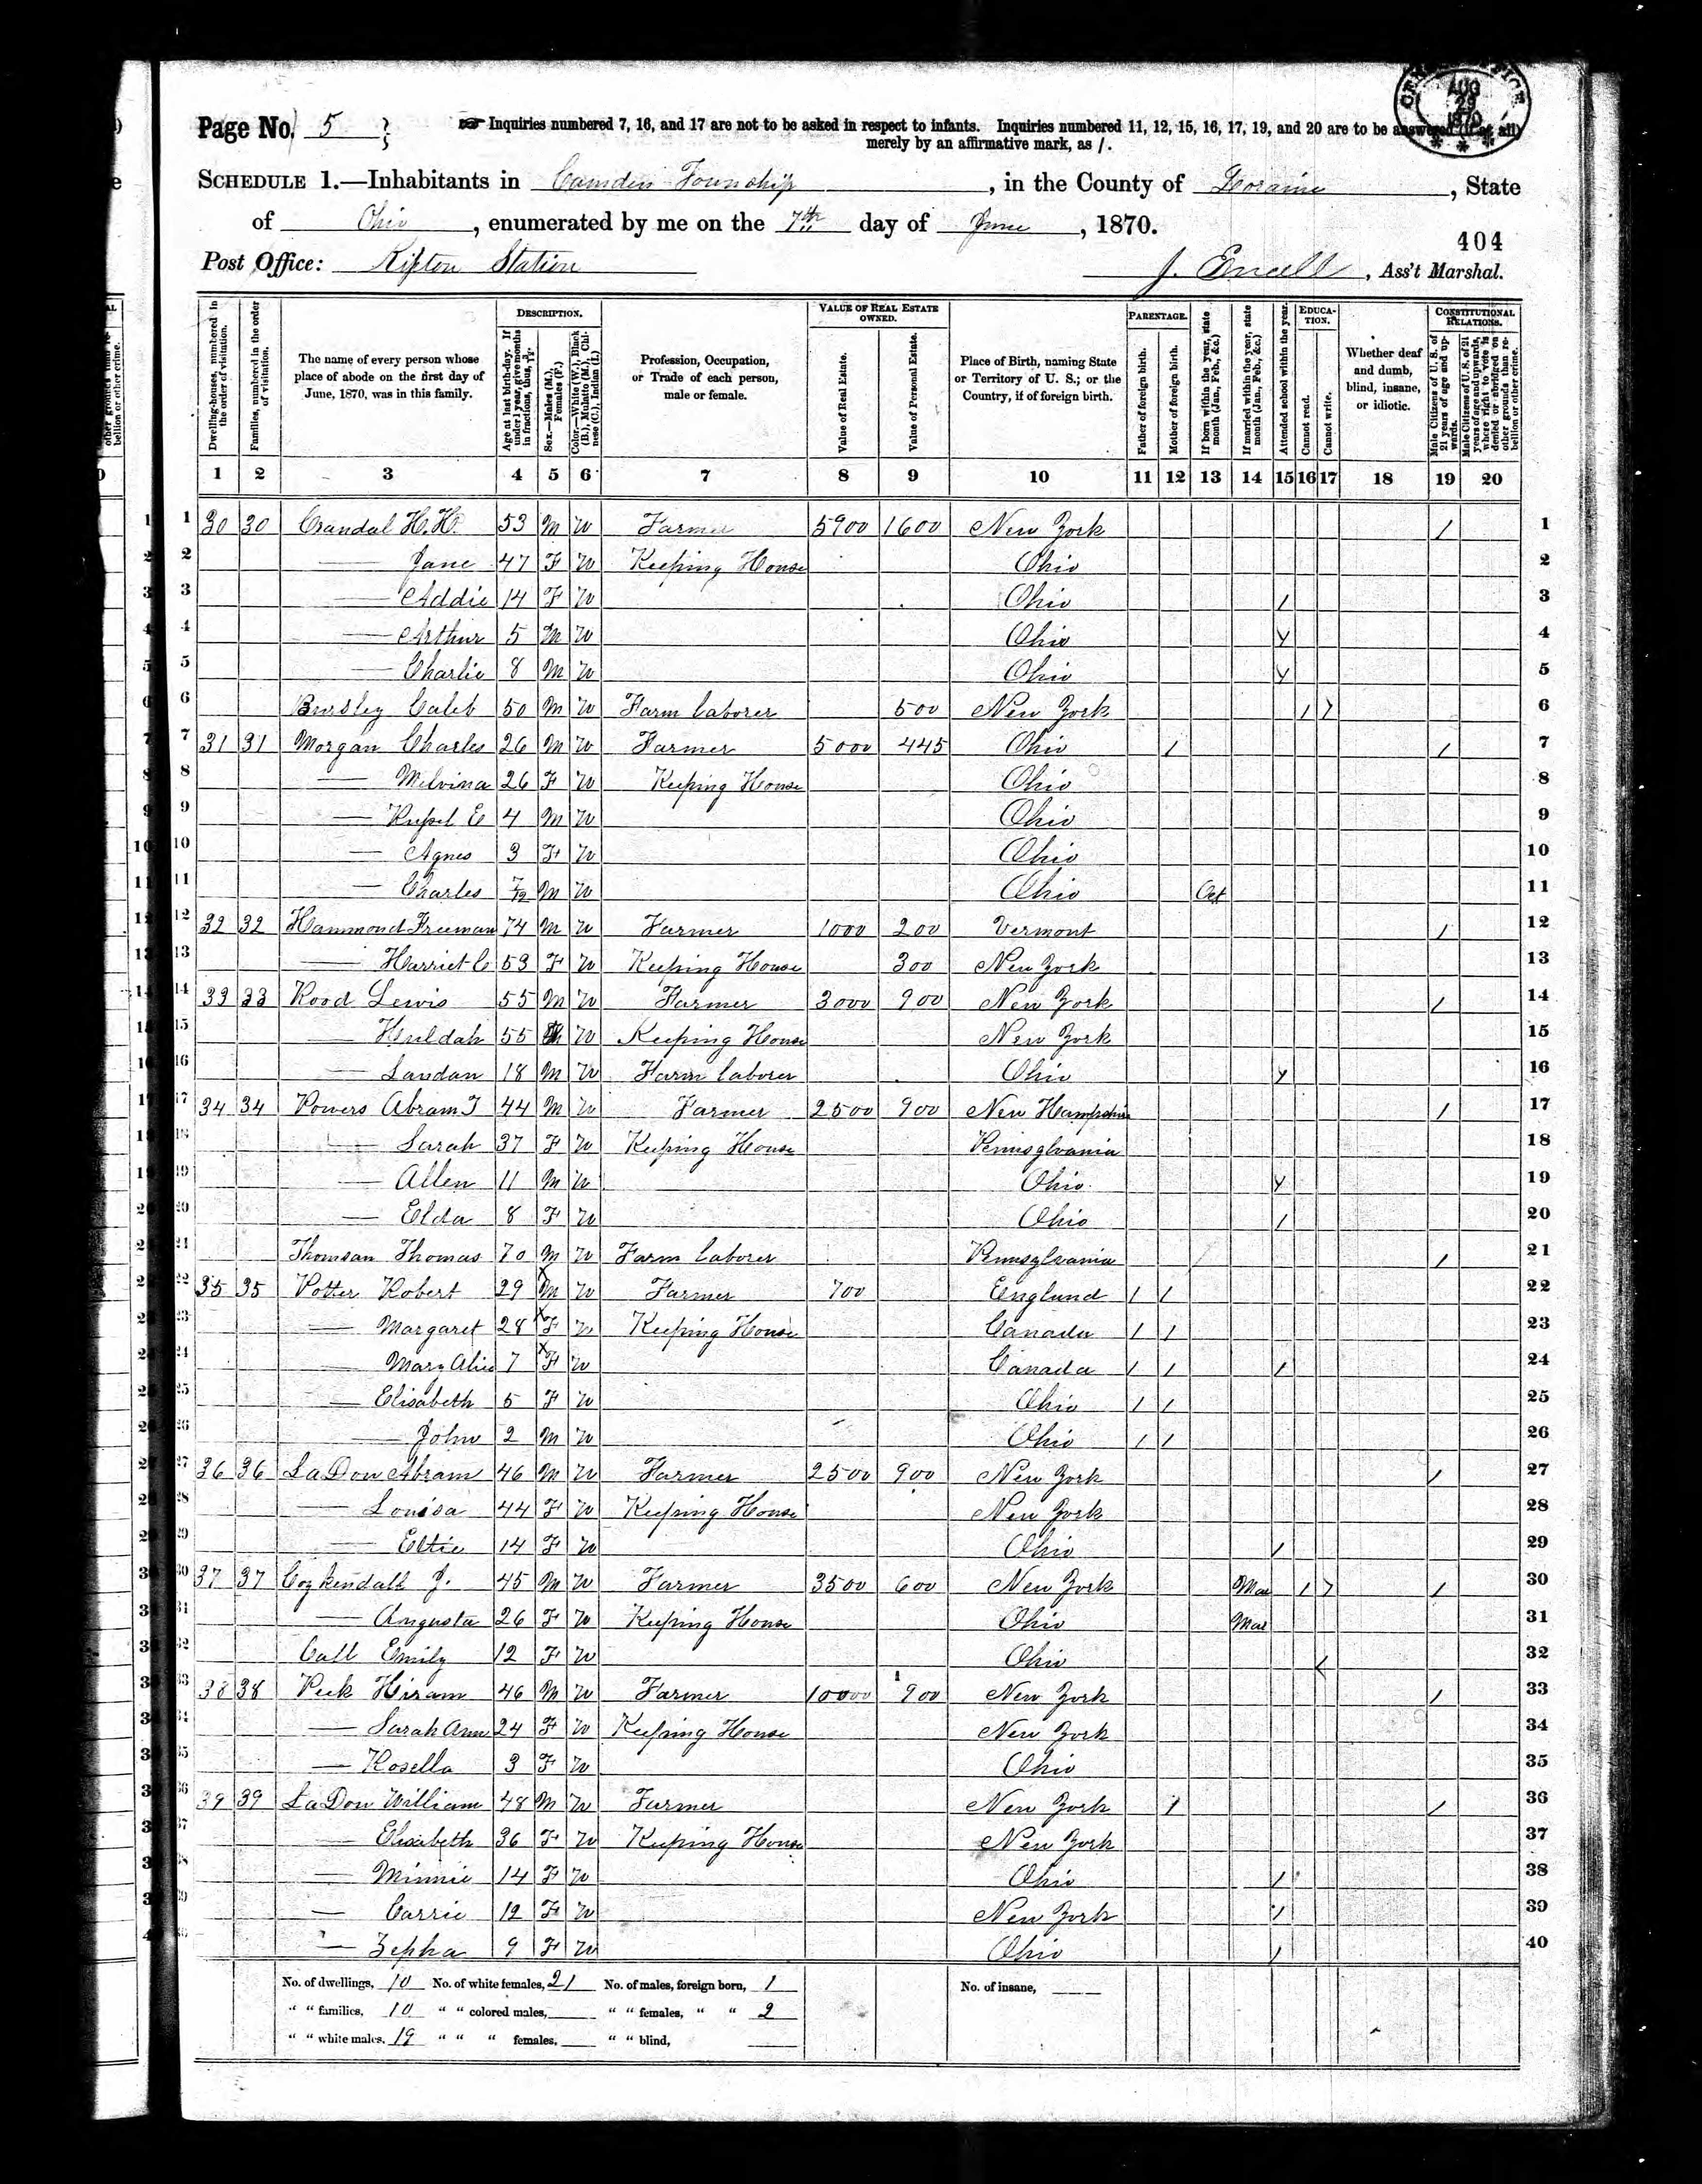 Page No. 5
Inquiries numbered 7, 16, and 17 are not to be asked in respect to infants. Inquiries numbered 11, 12, 15, 16, 17, 19, and 20 are to be answered (if at all)
merely by an affirmative mark, as /.
AUG 29 1870
SCHEDULE 1.—Inhabitants in Camden Township, in the County of Loraine, State
of Ohio, enumerated by me on the 7th day of June, 1870.
404
Post Office: Kipton Station
Ass't Marshal.
Dwelling-houses, numbered in the order of visitation.
Families, numbered in the order of visitation.
The name of every person whose place of abode on the first day of June, 1870, was in this family.
DESCRIPTION.
Age at last birth-day. If under 1 year, give months in fractions, thus, 3/12.
Sex.—Males (M.), Females (F.)
Color.—White (W.), Black (B.), Mulatto (M.), Chinese (C.), Indian (I.)
Profession, Occupation, or Trade of each person, male or female.
VALUE OF REAL ESTATE OWNED.
Value of Real Estate.
Value of Personal Estate.
Place of Birth, naming State or Territory of U. S.; or the Country, if of foreign birth.
PARENTAGE.
Father of foreign birth.
Mother of foreign birth.
If born within the year, state month (Jan., Feb., &c.)
If married within the year, state month (Jan., Feb., &c.)
Attended school within the year.
EDUCATION.
Cannot read.
Cannot write.
Whether deaf and dumb, blind, insane, or idiotic.
CONSTITUTIONAL RELATIONS.
Male Citizens of U. S. of 21 years of age and upwards.
Male Citizens of U. S. of 21 years of age and upwards, where right to vote is denied or abridged on other grounds than rebellion or other crime.
1 2 3 4 5 6 7 8 9 10 11 12 13 14 15 16 17 18 19 20
1 30 30 Crandal H. H. 53 M W Farmer 5900 1600 New York / 1
2 — Jane 47 F W Keeping House Ohio 2
3 — Addie 14 F W Ohio / 3
4 — Arthur 5 M W Ohio / 4
5 — Charlie 8 M W Ohio / 5
6 Caleb 50 M W Farm laborer 500 New York / / 6
7 31 31 Morgan Charles 26 M W Farmer 5000 445 Ohio / / 7
8 — Melvina 26 F W Keeping House Ohio 8
9 — E 4 M W Ohio 9
10 — Agnes 3 F W Ohio 10
11 — Charles 7/12 M W Ohio Oct 11
12 32 32 Hammond Freeman 74 M W Farmer 1000 200 Vermont / 12
13 — Harriet C 53 F W Keeping House 300 New York 13
14 33 33 Rood Lewis 55 M W Farmer 3000 900 New York / 14
15 — Huldah 55 W Keeping House New York 15
16 — Landan 18 M W Farm laborer Ohio / 16
17 34 34 Powers Abram T 44 M W Farmer 2500 900 New Hampshire / 17
18 — Sarah 37 F W Keeping House Pennsylvania 18
19 — Allen 11 M W Ohio / 19
20 — Elda 8 F W Ohio / 20
21 Thomson Thomas 70 M W Farm laborer Pennsylvania / 21
22 35 35 Potter Robert 29 M W Farmer 700 England / / 22
23 — Margaret 28 F W Keeping House Canada / / 23
24 — Mary Alice 7 F W Canada / / / 24
25 — Elisabeth 5 F W Ohio / / 25
26 — John 2 M W Ohio / / 26
27 36 36 LaDow Abram 46 M W Farmer 2500 900 New York / 27
28 — Louisa 44 F W Keeping House New York 28
29 — Ettie 14 F W Ohio / 29
30 37 37 Coykendall J. 45 M W Farmer 3500 600 New York Mar / / / 30
31 — Augusta 26 F W Keeping House Ohio Mar 31
32 Call Emily 12 F W Ohio / 32
33 38 38 Peck Hiram 46 M W Farmer 10000 900 New York / 33
34 — Sarah Ann 24 F W Keeping House New York 34
35 — Rosella 3 F W Ohio 35
36 39 39 LaDow William 48 M W Farmer New York / / 36
37 — Elisabeth 36 F W Keeping House New York 37
38 — Minnie 14 F W Ohio / 38
39 — Carrie 12 F W New York / 39
40 — Zepha 9 F W Ohio / 40
No. of dwellings, 10 No. of white females, 21 No. of males, foreign born, 1 No. of insane,
" " families, 10 " " colored males, " " females, " " 2
" " white males, 19 " " " females, " " blind,